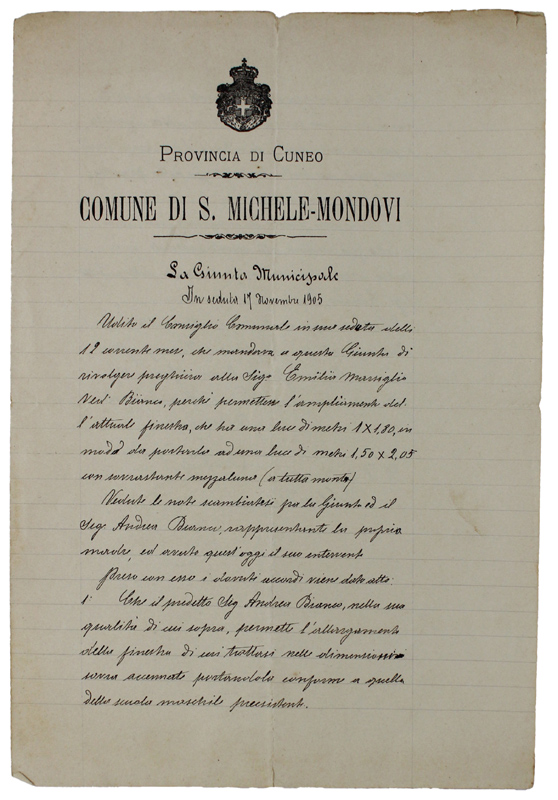 PROVINCIA DI CUNEO
COMUNE DI S. MICHELE-MONDOVI
La Giunta Municipale
In seduta 17 Novembre 1905
Udito il Consiglio Comunale in sua seduta delli
12 corrente mese, che mandava a questa Giunta di
rivolgere preghiera alla Siga Emilia Marsiglio
Ved Bianco, perché permettesse l'ampliamento del
l'attuale finestra, che ha una luce di metri 1 X 1,80, in
modo da portarla ad una luce di metri 1,50 X 2,05
con sovrastante mezzaluna (a tutta monta)
Vedute le note scambiatesi fra la Giunta ed il
Sig Andrea Bianco, rappresentante la propria
madre, ed avuto quest'oggi il suo intervento
Preso con esso i dovuti accordi viene dato atto:
1° Che il predetto Sig Andrea Bianco, nella sua
qualità di cui sopra, permette l'allargamento
della finestra di cui trattasi nelle dimensioni
sovra accennate portandola conforme a quella
della scuola maschile preesistente.